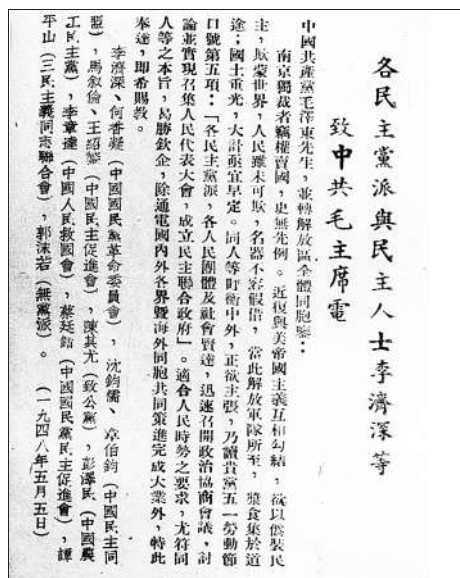 各民主黨派與民主人士李濟深等
致中共毛主席電
中國共產黨毛澤東先生，並轉解放區全體同胞鑒：
南京獨裁者竊權賣國，史無先例。近復與美帝國主義互相勾結，欲以僞裝民
主，欺蒙世界，人民雖未可欺，名器不容假借，當此解放軍隊所至，漿食集於道
途；國土重光，大計亟宜早定。同人等盱衡中外，正欲主張，乃讀貴黨五一勞動節
口號第五項：「各民主黨派，各人民團體及社會賢達，迅速召開政治協商會議，討
論並實現召集人民代表大會，成立民主聯合政府」。適合人民時勢之要求，尤符同
人等之本旨，曷勝欽企，除通電國內外各界暨海外同胞共同策進完成大業外，特此
奉達，即希賜教。
李濟深、何香凝（中國國民黨革命委員會），沈鈞儒、章伯鈞（中國民主同
盟），馬叙倫、王紹鏊（中國民主促進會），陳其尤（致公黨），彭澤民（中國農
工民主黨），李章達（中國人民救國會），蔡廷鍇（中國國民黨民主促進會），譚
平山（三民主義同志聯合會），郭沫若（無黨派）。（一九四八年五月五日）